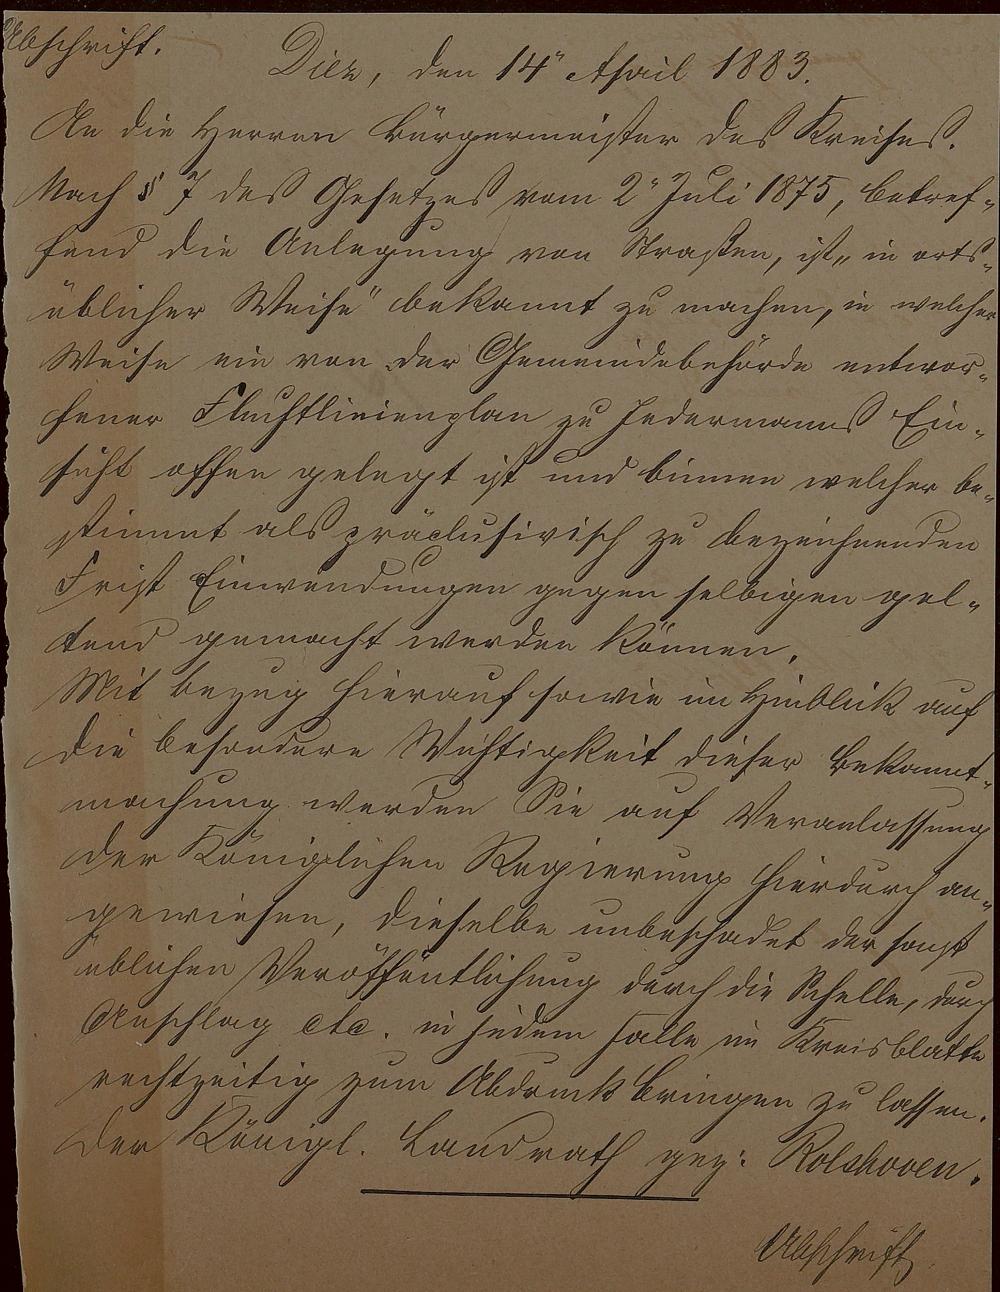 Abschrift.
Diez, den 14" April 1883.
An die Herren Bürgermeister des Kreises.
Nach § 7 des Gesetzes vom 2" Juli 1875, betref-
fend die Anlegung von Straßen, ist „in orts-
üblicher Weise" bekannt zu machen, in welcher
Weise ein von der Gemeindebehörde entwor-
fener Fluchtlinienplan zu Jedermanns Ein-
sicht offen gelegt ist und binnen welcher be-
stimmt als präclusivisch zu bezeichnenden
Frist Einwendungen gegen selbigen gel-
tend gemacht werden können.
Mit bezug hierauf sowie im Hinblick auf
die besondere Wichtigkeit dieser Bekannt-
machung werden Sie auf Veranlassung
der Königlichen Regierung hierdurch an-
gewiesen, dieselbe unbeschadet der sonst
üblichen Veröffentlichung durch die Schelle, durch
Anschlag etc. in jedem Falle im Kreisblatte
rechtzeitig zum Abdruck bringen zu lassen.
Der Königl. Landrath gez: Rolshoven.
Abschrift